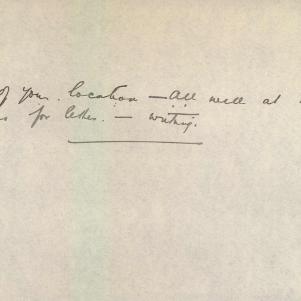 of your location — All well at
for letter. — writing.